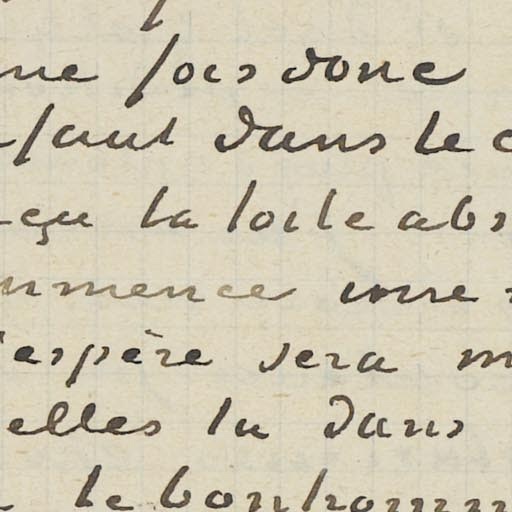 ne fois donc
faut dans le c
eçu ta toile abs
mmence une
espère sera m
elles tu dans
le bonhomm